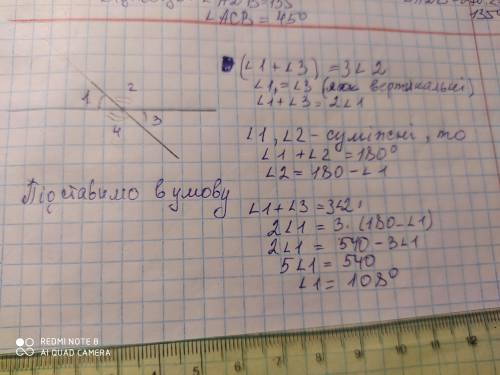 ∠ACB = 45°
135°
(∠1+∠3) = 3∠2
∠1 = ∠3 (як вертикальні)
∠1+∠3 = 2∠1
1 2 3 4
∠1, ∠2 - суміжні, то
∠1 + ∠2 = 180°
∠2 = 180 - ∠1
Підставимо в умову
∠1 + ∠3 = 3∠2
2∠1 = 3·(180-∠1)
2∠1 = 540 - 3∠1
5∠1 = 540
∠1 = 108°
REDMI NOTE 8
AI QUAD CAMERA
1 2 3 4 5 6 7 8 9 10 11 12